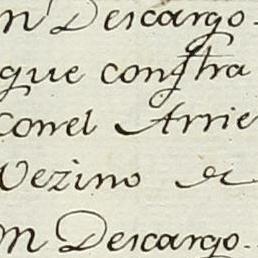 n Descargo.
que constra
conel Arrie
Vezino de
on Descargo.